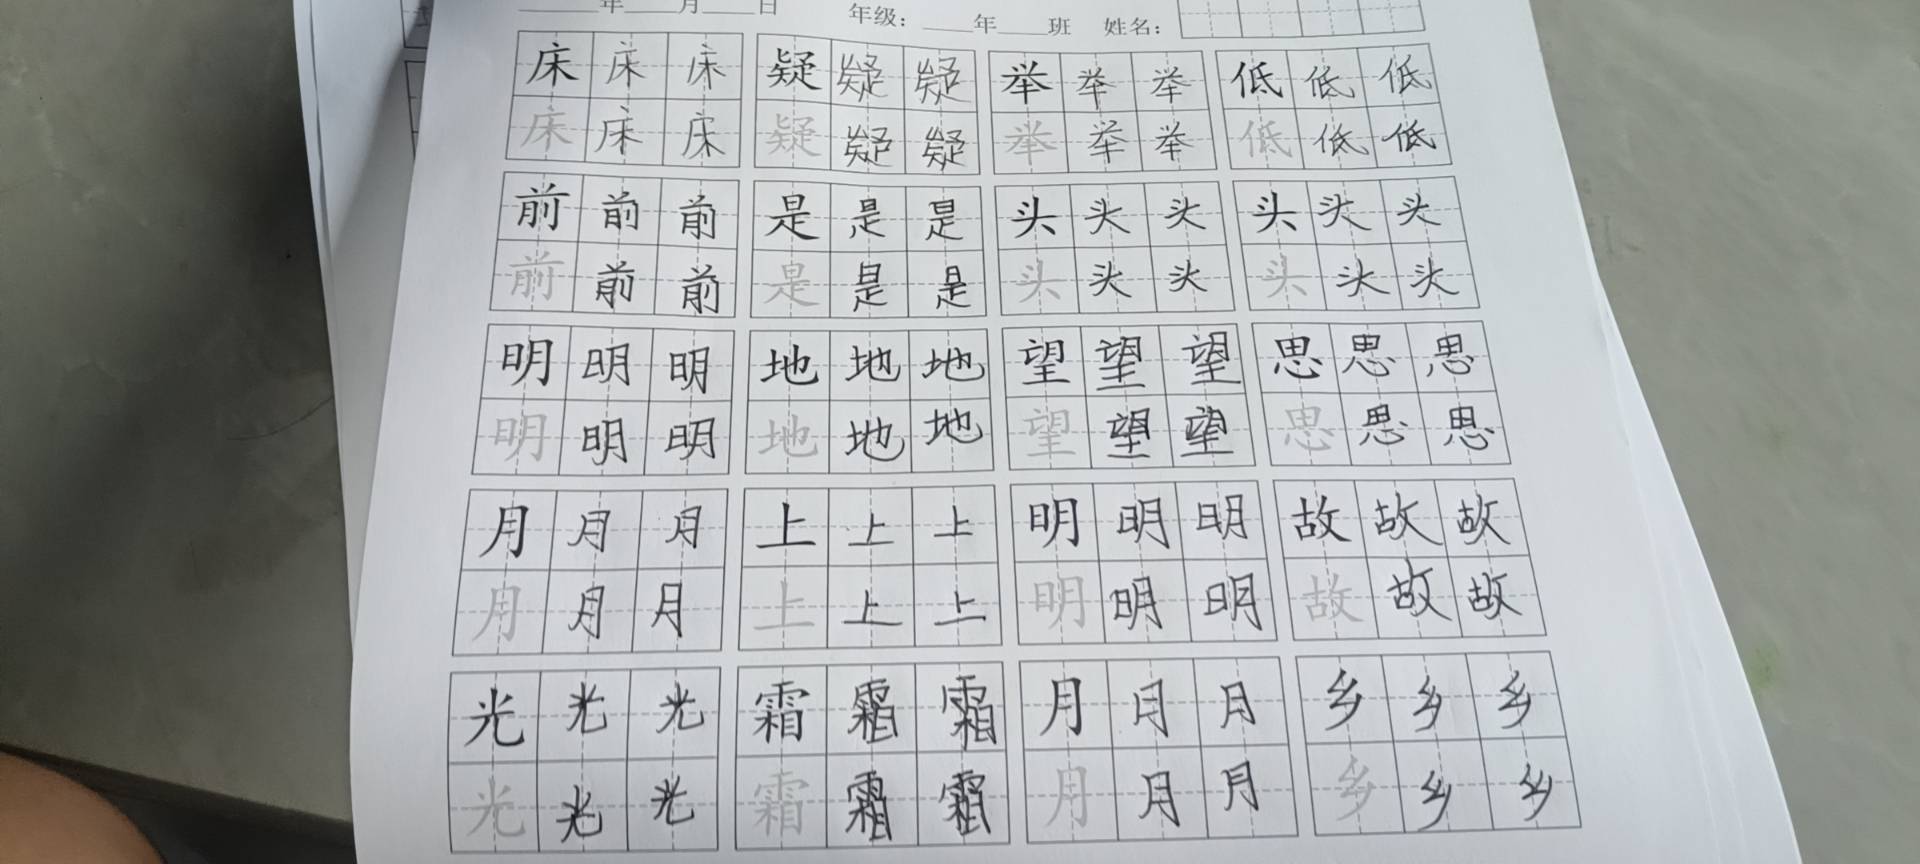 年 月 日 年级： 年 班 姓名：
床 床 床 疑 疑 疑 举 举 举 低 低 低
床 床 床 疑 疑 疑 举 举 举 低 低 低
前 前 前 是 是 是 头 头 头 头 头 头
前 前 前 是 是 是 头 头 头 头 头 头
明 明 明 地 地 地 望 望 望 思 思 思
明 明 明 地 地 地 望 望 望 思 思 思
月 月 月 上 上 上 明 明 明 故 故 故
月 月 月 上 上 上 明 明 明 故 故 故
光 光 光 霜 霜 霜 月 月 月 乡 乡 乡
光 光 光 霜 霜 霜 月 月 月 乡 乡 乡